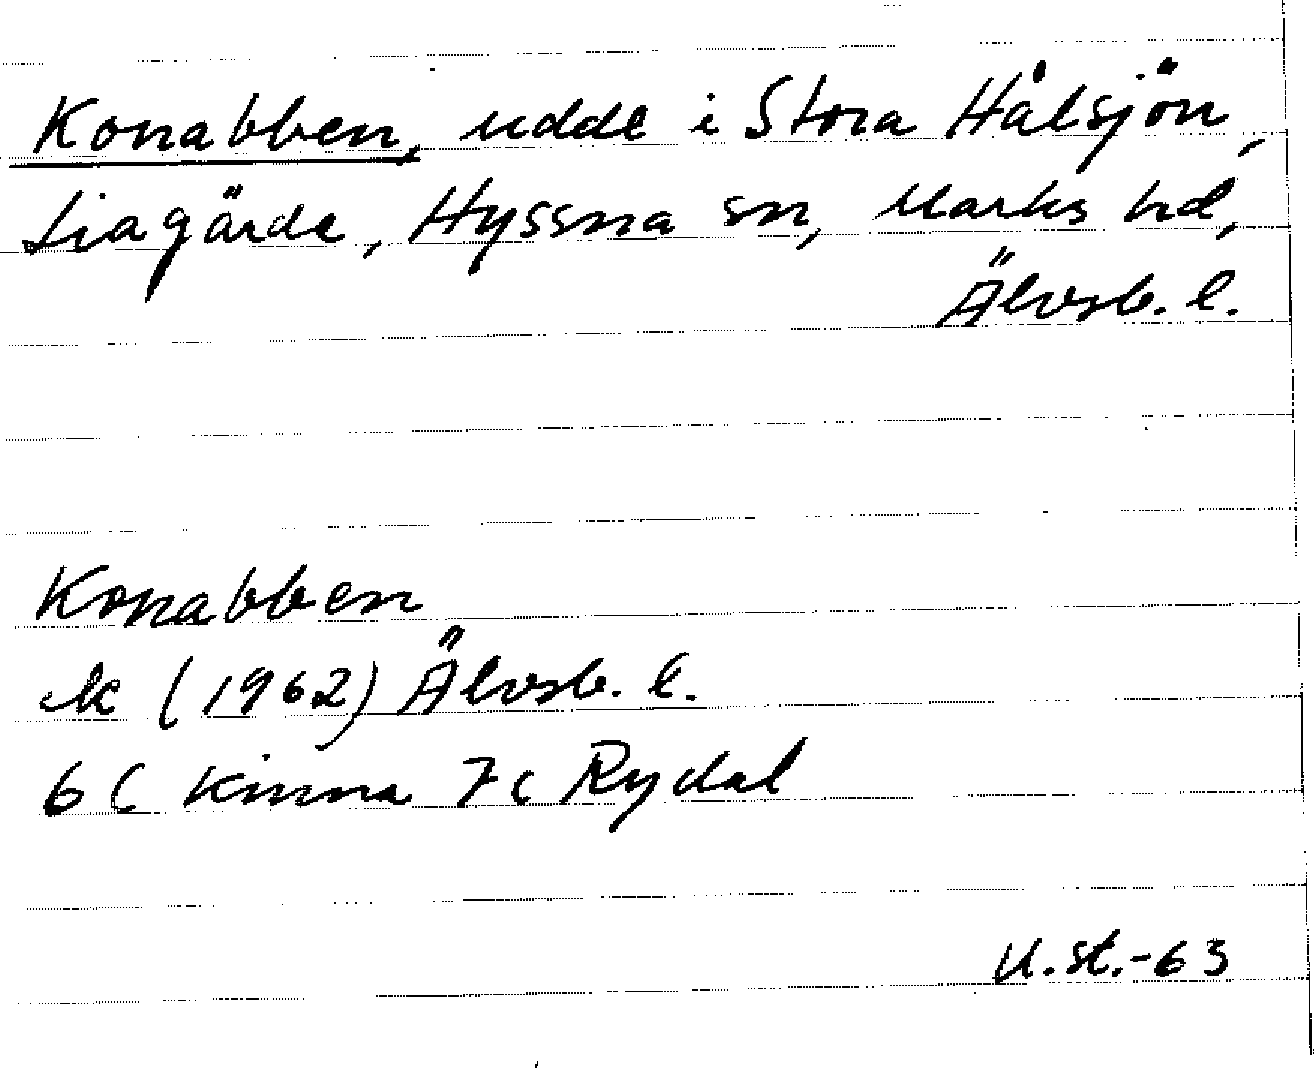 Konabben, udde i Stora Hålsjön,
Liagärde, Hyssna sn, Marks hd,
Älvsb. l.
Konabben
ek (1962) Älvsb. l.
6 C Kinna 7 c Rydal
U.st.-63